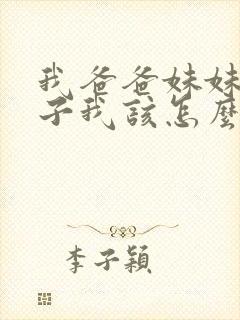 我爸爸妹妹
子我該怎麼
李子穎